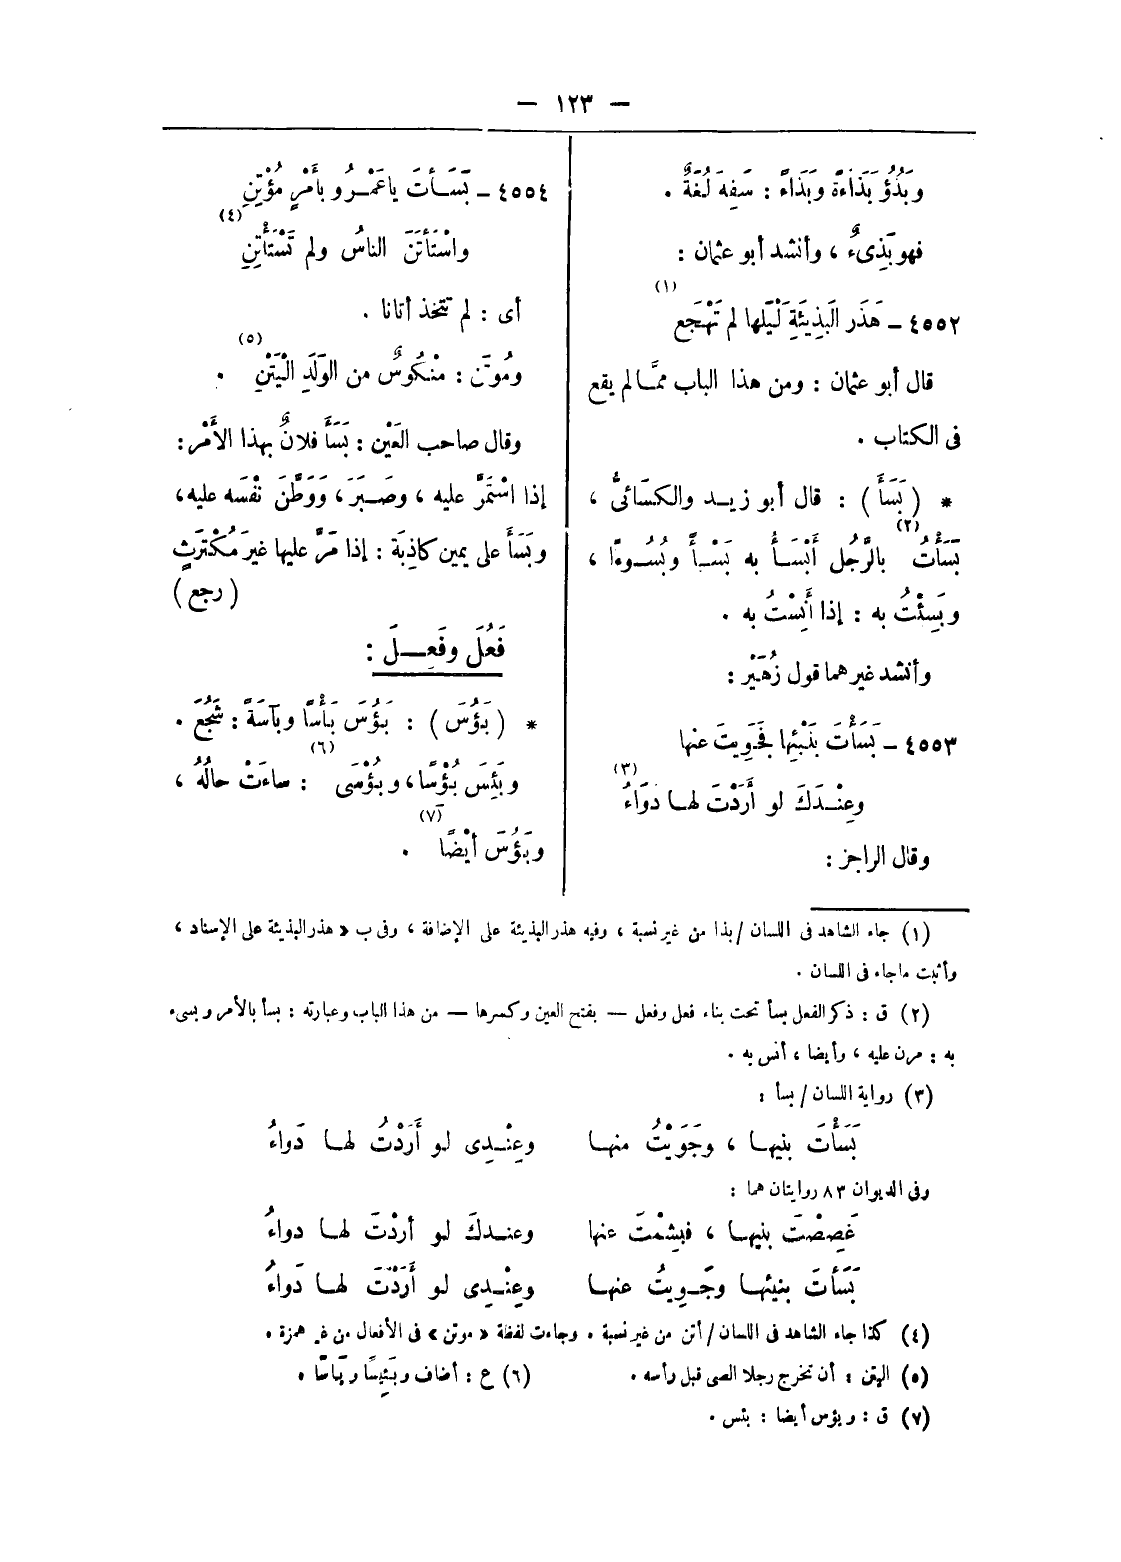 — ١٢٣ —
وبَذُؤ بَذَاءَةً وبَذَاءً : سَفِهَ لُغَةٌ .
فهو بَذِىءٌ ، وأنشد أبو عثمان :
٤٥٥٢ – هَذَر البَذِيئَةِ لَيْلَها لم تَهْجَع (١)
قال أبو عثمان : ومن هذا الباب ممَّا لم يقع
فى الكتاب .
* ( بَسَأَ ) : قال أبو زيد والكسَائىُّ ،
بَسَأْتُ (٢) بالرَّجُل أَبْسَأُ به بَسْأً وبُسُوءًا ،
وبَسِئْتُ به : إذا أَنِسْتُ به .
وأنشد غيرهما قول زُهَيْر :
٤٥٥٣ – بَسَأْتَ بنَيْئِها فَجَوِيتَ عنها
وعِنْدَكَ لو أَرَدْتَ لها دَوَاءُ (٣)
وقال الراجز :
٤٥٥٤ – بَسَأتَ ياعَمْرُو بأَمْرٍ مُؤْتِنِ
واسْتَأتَنَ الناسُ ولم تَسْتَأْتِنِ (٤)
أى : لم تتخذ أتانا .
ومُوتَن : مَنْكُوسٌ من الوَلَدِ الْيَتْنِ (٥) .
وقال صاحب العَيْن : بَسَأَ فلانٌ بهذا الأَمْر :
إذا اسْتَمَرَّ عليه ، وصَبَرَ ، وَوَطَّنَ نَفْسَه عليه ،
وبَسَأَ على يمين كاذِبَة : إذا مَرَّ عليها غيرَ مُكْتَرِثٍ
( رجع )
فَعُلَ وفَعِلَ :
* ( بَؤُسَ ) : بَؤُسَ بَأْسًا وبآسَةً : شَجُعَ .
وبَئِسَ بُؤْسًا ، وبُؤْسَى (٦) : ساءَتْ حالُهُ ،
وبَؤُسَ أيْضًا (٧) .
(١) جاء الشاهد فى اللسان / بذا من غير نسبة ، وفيه هذر البذيئة على الإضافة ، وفى ب « هذر البذيئة على الإسناد ،
وأثبت ماجاء فى اللسان .
(٢) ق : ذكر الفعل بسأ تحت بناء فعل وفعل — بفتح العين وكسرها — من هذا الباب وعبارته : بسأ بالأمر وبسىء
به : مرن عليه ، وأيضا ، أنس به .
(٣) رواية اللسان / بسأ :
بَسَأْتَ بنيها ، وجَوَيْتُ منها وعِنْدِى لو أَرَدْتُ لها دَواءُ
وفى الديوان ٨٣ روايتان هما :
غَصِصْتَ بنيها ، فبشِمْتَ عنها وعندكَ لو أردْتَ لها دواءُ
بَسَأتَ بنيئها وجَوِيتُ عنها وعِنْدِى لو أَرَدْتَ لها دَواءُ
(٤) كذا جاء الشاهد فى اللسان / أتن من غير نسبة . وجاءت لفظة « موتن » فى الأفعال من غير همزة .
(٥) اليتن : أن تخرج رجلا الصبى قبل رأسه . (٦) ع : أضاف وبَئِيسًا وبَأسًا .
(٧) ق : وبؤس أيضا : بئس .